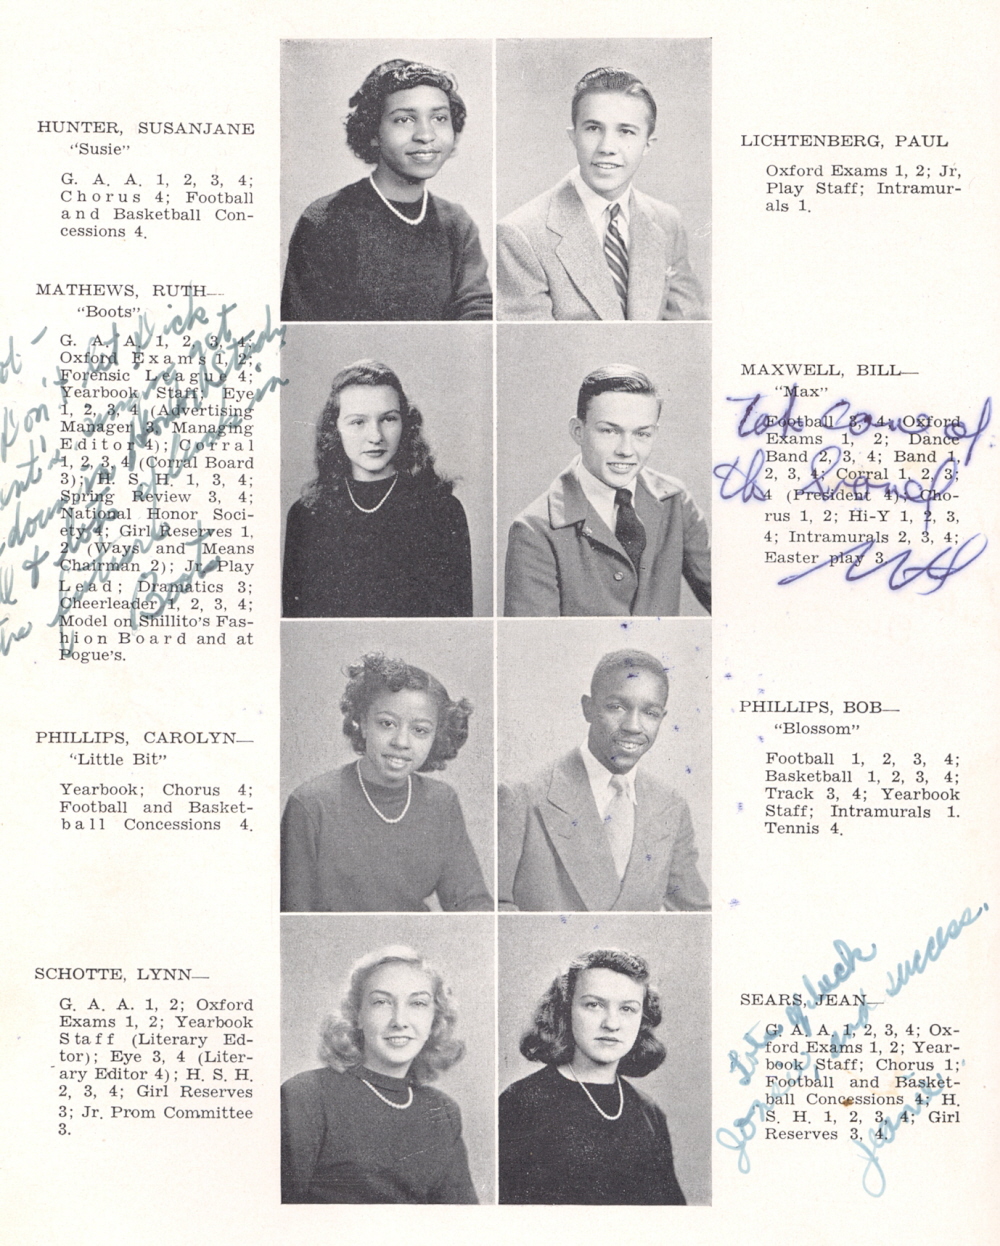 HUNTER, SUSANJANE
"Susie"
G. A. A. 1, 2, 3, 4;
Chorus 4; Football
and Basketball Con-
cessions 4.
LICHTENBERG, PAUL
Oxford Exams 1, 2; Jr,
Play Staff; Intramur-
als 1.
MATHEWS, RUTH—
"Boots"
G. A. A. 1, 2, 3, 4;
Oxford Exams 1, 2;
Forensic League 4;
Yearbook Staff; Eye
1, 2, 3, 4 (Advertising
Manager 3, Managing
Editor 4); Corral
1, 2, 3, 4 (Corral Board
3); H. S. H. 1, 3, 4;
Spring Review 3, 4;
National Honor Soci-
ety 4; Girl Reserves 1,
2 (Ways and Means
Chairman 2); Jr. Play
Lead; Dramatics 3;
Cheerleader 1, 2, 3, 4;
Model on Shillito's Fas-
hion Board and at
Pogue's.
Don't let Dick
get
down
future
Boots
MAXWELL, BILL—
"Max"
Football 3, 4; Oxford
Exams 1, 2; Dance
Band 2, 3, 4; Band 1,
2, 3, 4; Corral 1, 2, 3;
4 (President 4); Cho-
rus 1, 2; Hi-Y 1, 2, 3,
4; Intramurals 2, 3, 4;
Easter play 3.
Take Care of
the
PHILLIPS, CAROLYN—
"Little Bit"
Yearbook; Chorus 4;
Football and Basket-
ball Concessions 4.
PHILLIPS, BOB—
"Blossom"
Football 1, 2, 3, 4;
Basketball 1, 2, 3, 4;
Track 3, 4; Yearbook
Staff; Intramurals 1.
Tennis 4.
SCHOTTE, LYNN—
G. A. A. 1, 2; Oxford
Exams 1, 2; Yearbook
Staff (Literary Ed-
tor); Eye 3, 4 (Liter-
ary Editor 4); H. S. H.
2, 3, 4; Girl Reserves
3; Jr. Prom Committee
3.
SEARS, JEAN—
G. A. A. 1, 2, 3, 4; Ox-
ford Exams 1, 2; Year-
book Staff; Chorus 1;
Football and Basket-
ball Concessions 4; H.
S. H. 1, 2, 3, 4; Girl
Reserves 3, 4.
Lots of luck
and success.
Jeanie